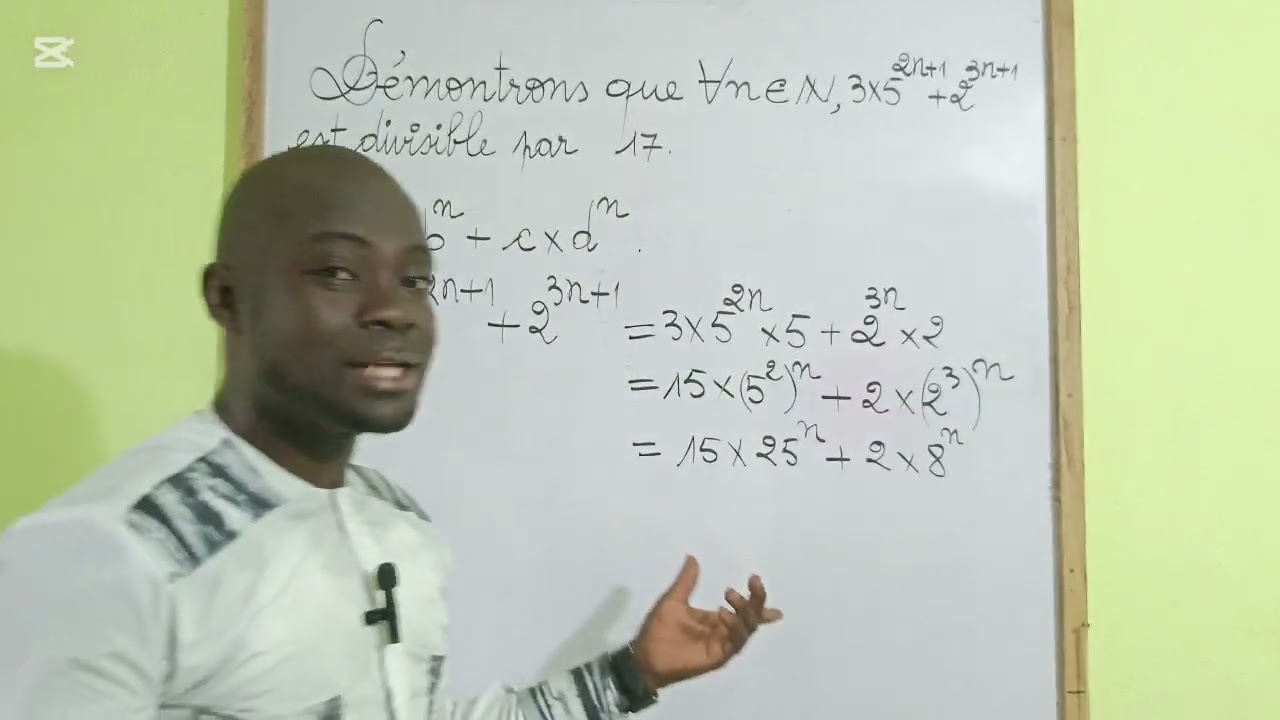 Démontrons que ∀n∈ℕ, 3×5²ⁿ⁺¹+2³ⁿ⁺¹
est divisible par 17.
bⁿ + c×dⁿ.
2n+1 + 2³ⁿ⁺¹ = 3×5²ⁿ×5 + 2³ⁿ×2
= 15×(5²)ⁿ + 2×(2³)ⁿ
= 15×25ⁿ + 2×8ⁿ